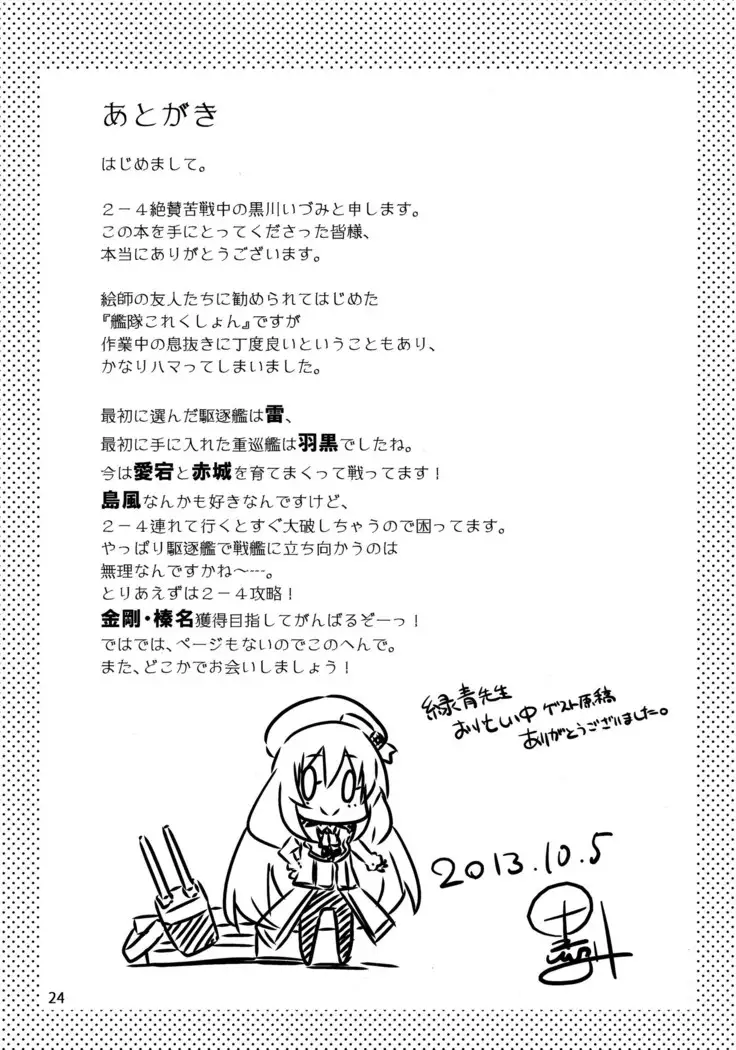 あとがき
はじめまして。
２－４絶賛苦戦中の黒川いづみと申します。
この本を手にとってくださった皆様、
本当にありがとうございます。
絵師の友人たちに勧められてはじめた
『艦隊これくしょん』ですが
作業中の息抜きに丁度良いということもあり、
かなりハマってしまいました。
最初に選んだ駆逐艦は雷、
最初に手に入れた重巡艦は羽黒でしたね。
今は愛宕と赤城を育てまくって戦ってます！
島風なんかも好きなんですけど、
２－４連れて行くとすぐ大破しちゃうので困ってます。
やっぱり駆逐艦で戦艦に立ち向かうのは
無理なんですかね～---。
とりあえずは２－４攻略！
金剛・榛名獲得目指してがんばるぞーっ！
ではでは、ページもないのでこのへんで。
また、どこかでお会いしましょう！
緑青先生
お忙しい中 ゲスト原稿
ありがとうございました。
2013.10.5
24